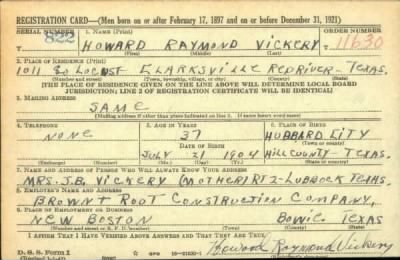 REGISTRATION CARD—(Men born on or after February 17, 1897 and on or before December 31, 1921)
SERIAL NUMBER 1. NAME (Print) ORDER NUMBER
822 HOWARD RAYMOND VICKERY 11630
(First) (Middle) (Last)
2. PLACE OF RESIDENCE (Print)
1011 So LOCUST CLARKSVILLE RED RIVER TEXAS
(Number and street) (Town, township, village, or city) (County) (State)
[THE PLACE OF RESIDENCE GIVEN ON THE LINE ABOVE WILL DETERMINE LOCAL BOARD
JURISDICTION; LINE 2 OF REGISTRATION CERTIFICATE WILL BE IDENTICAL]
3. MAILING ADDRESS
SAME
[Mailing address if other than place indicated on line 2. If same insert word same]
4. TELEPHONE 5. AGE IN YEARS 6. PLACE OF BIRTH
NONE 37 HUBBARD CITY
DATE OF BIRTH (Town or county)
JULY 21 1904 HILL COUNTY TEXAS
(Exchange) (Number) (Mo.) (Day) (Yr.) (State or country)
7. NAME AND ADDRESS OF PERSON WHO WILL ALWAYS KNOW YOUR ADDRESS
MRS. J.B. VICKERY (MOTHER) RT 2 - LUBBOCK TEXAS,
8. EMPLOYER'S NAME AND ADDRESS
BROWN & ROOT CONSTRUCTION COMPANY,
9. PLACE OF EMPLOYMENT OR BUSINESS
NEW BOSTON BOWIE TEXAS
(Number and street or R. F. D. number) (Town) (County) (State)
I AFFIRM THAT I HAVE VERIFIED ABOVE ANSWERS AND THAT THEY ARE TRUE.
D. S. S. Form 1 Howard Raymond Vickery